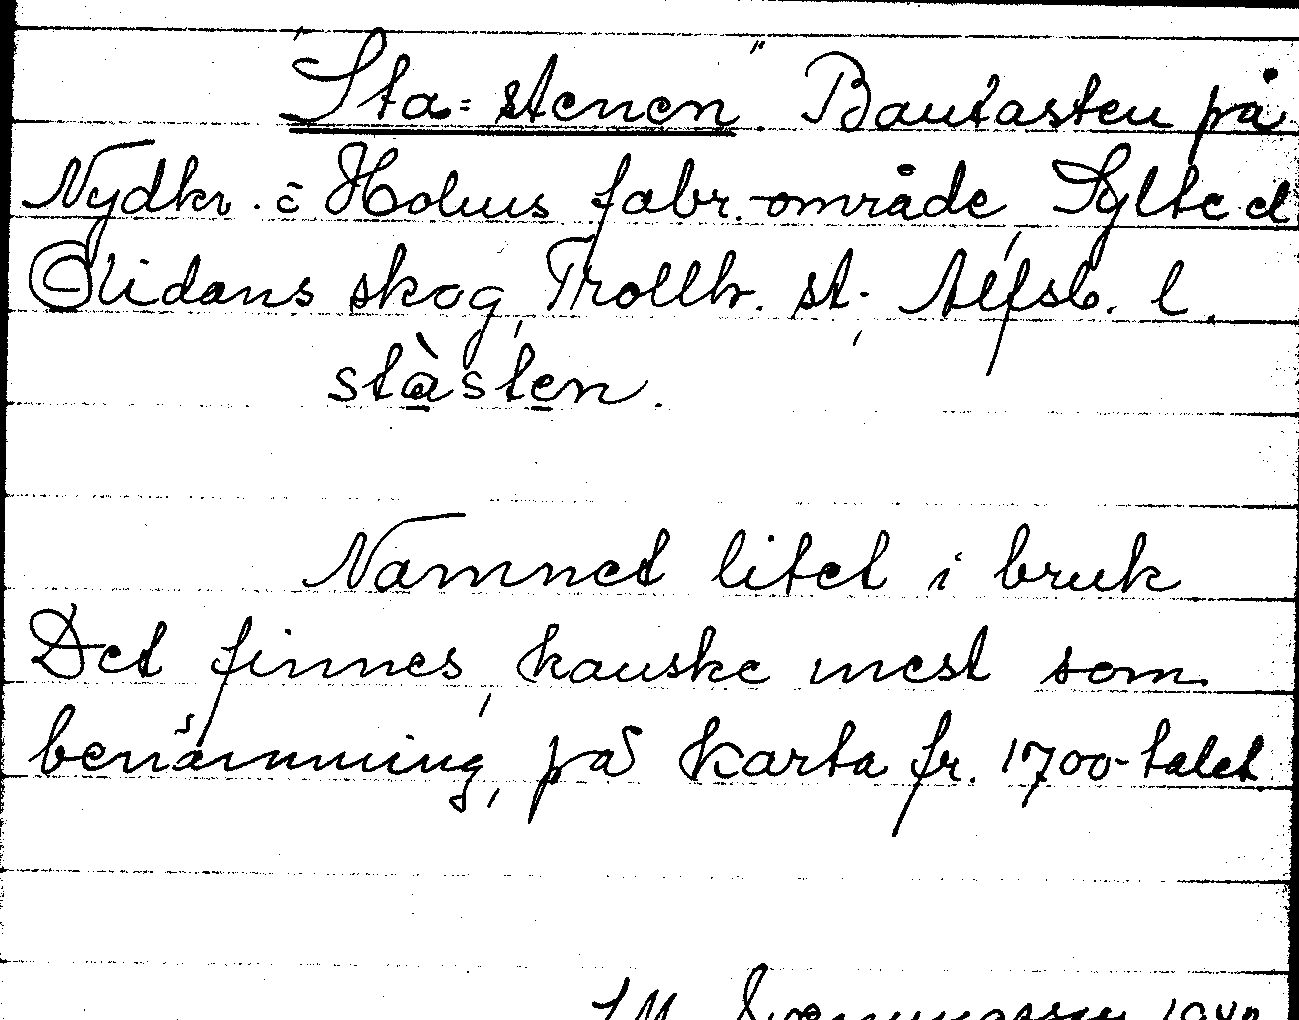 "Sta-stenen". Bautasten på
Nydkv. & Holms fabr.-område, Sylte el
Olidans skog, Trollh. st., Älfsb. l.
ståsten.
Namnet litet i bruk
Det finnes, kanske mest som
benämning, på karta fr. 1700-talet